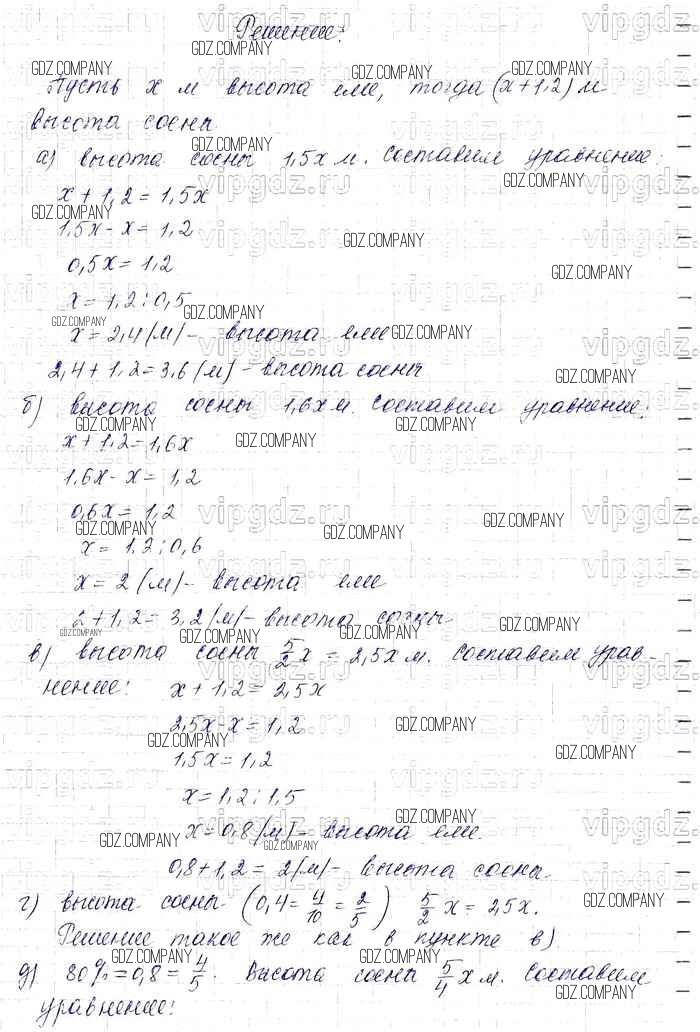 Решение:
Пусть х м высота ели, тогда (х+1,2) м
высота сосны
а) высота сосны 1,5х м. Составим уравнение:
х + 1,2 = 1,5х
1,5х - х = 1,2
0,5х = 1,2
х = 1,2 : 0,5
х = 2,4 (м) - высота ели
2,4 + 1,2 = 3,6 (м) - высота сосны
б) высота сосны 1,6х м. Составим уравнение:
х + 1,2 = 1,6х
1,6х - х = 1,2
0,6х = 1,2
х = 1,2 : 0,6
х = 2 (м) - высота ели
2 + 1,2 = 3,2 (м) - высота сосны
в) высота сосны 5/2 х = 2,5х м. Составим урав-
нение: х + 1,2 = 2,5х
2,5х - х = 1,2
1,5х = 1,2
х = 1,2 : 1,5
х = 0,8 (м) - высота ели.
0,8 + 1,2 = 2 (м) - высота сосны.
г) высота сосны (0,4 = 4/10 = 2/5) 5/2 х = 2,5х.
Решение такое же как в пункте в).
д) 80% = 0,8 = 4/5. Высота сосны 5/4 х м. Составим
уравнение:
GDZ.COMPANY
vipgdz.ru